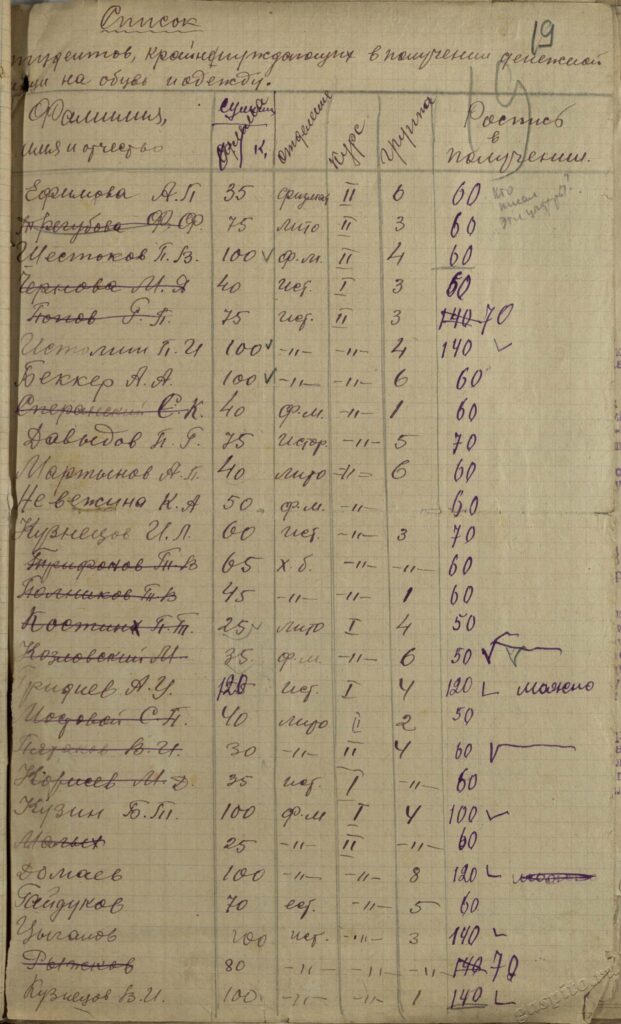 Список
19
студентов, крайне нуждающих в получении денежной
на обувь и одежду.
Фамилия, имя и отчество | сумма | отделение | курс | группа | Роспись в получении.
Ефимова А.П 35 физмат II 6 60 Кто писал эти цифры?
Трегубова Ф.Ф. 75 лито II 3 60
Шестоков П.В. 100 ✓ ф.м. II 4 60
Чернова М.Я 40 ист. I 3 60
Попов Г.П. 75 ист. II 3 140 70
Истомин П.И 100 ✓ -"- -"- 4 140 ✓
Беккер А.А. 100 ✓ -"- -"- 6 60
Сперанский С.К. 40 ф.м. -"- 1 60
Давыдов П.Г. 75 истор. -"- 5 70
Мартынов А.П. 40 лито -"- 6 60
Невежина К.А 50 ф.м. -"- 60
Кузнецов И.Л. 60 ист. -"- 3 70
Трифонов Т.В 65 х.б. -"- -"- 60
Полников Т.В 45 -"- -"- 1 60
Костин П.Т. 25 лито I 4 50
Козловский М 35 ф.м. -"- 6 50 ✓
Гридиев А.У. 120 ист. I 4 120 ✓ можно
С.П. 40 лито II 2 50
Пятаков В.И. 30 -"- II 4 60 ✓
Корисев М.Д. 35 ист. I -"- 60
Кузин Б.Т. 100 ф.м I 4 100 ✓
Малых 25 -"- II -"- 60
Домаев 100 -"- -"- 8 120 ✓
Гайдуков 70 ест. -"- 5 60
Цыганов 100 ист. -"- 3 140 ✓
Рыжков 80 -"- -"- -"- 140 70
Кузнецов В.И. 100 -"- -"- 1 140 ✓